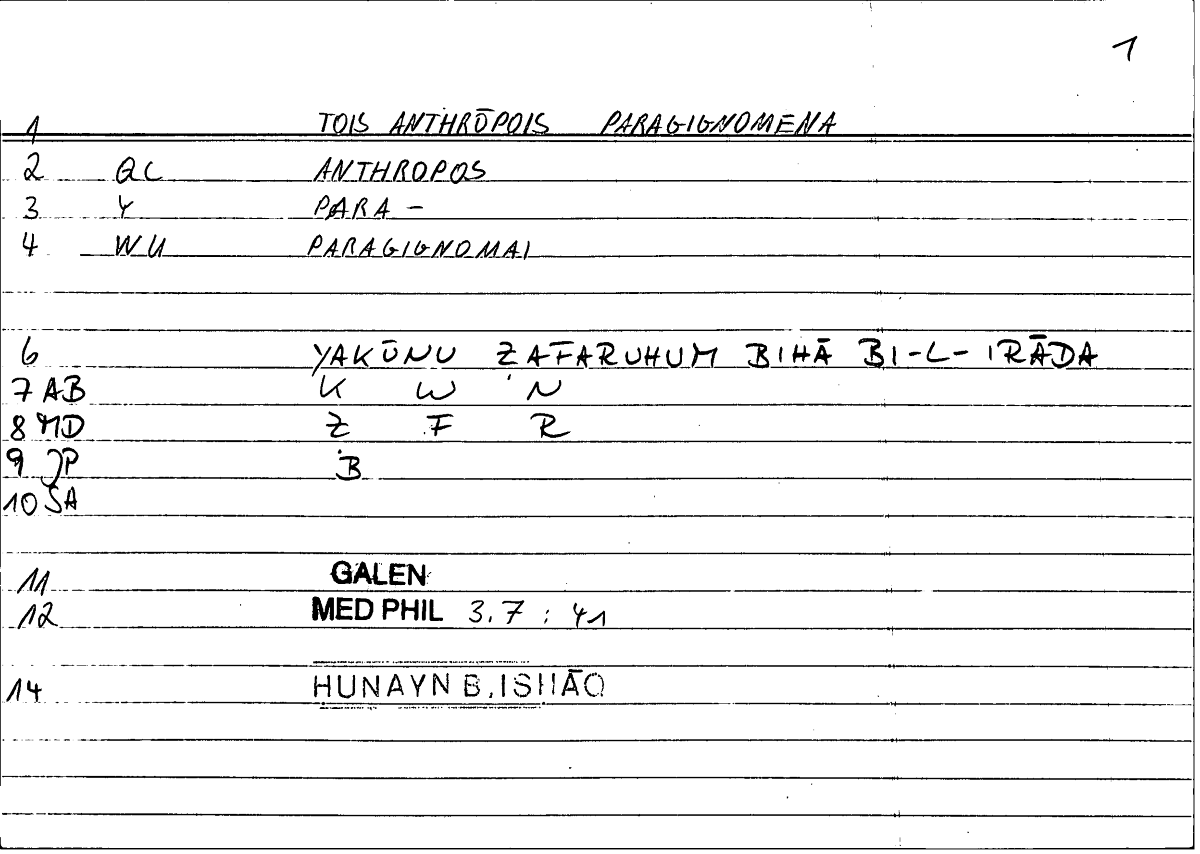 1
1 TOIS ANTHRŌPOIS PARAGIGNOMENA
2 QC ANTHROPOS
3 Y PARA -
4 WU PARAGIGNOMAI
6 YAKŪNU ẒAFARUHUM BIHĀ BI-L-IRĀDA
7 AB K W N
8 MD Ẓ F R
9 JP B
10 SA
11 GALEN
12 MED PHIL 3.7 : 41
14 HUNAYN B. ISHĀQ